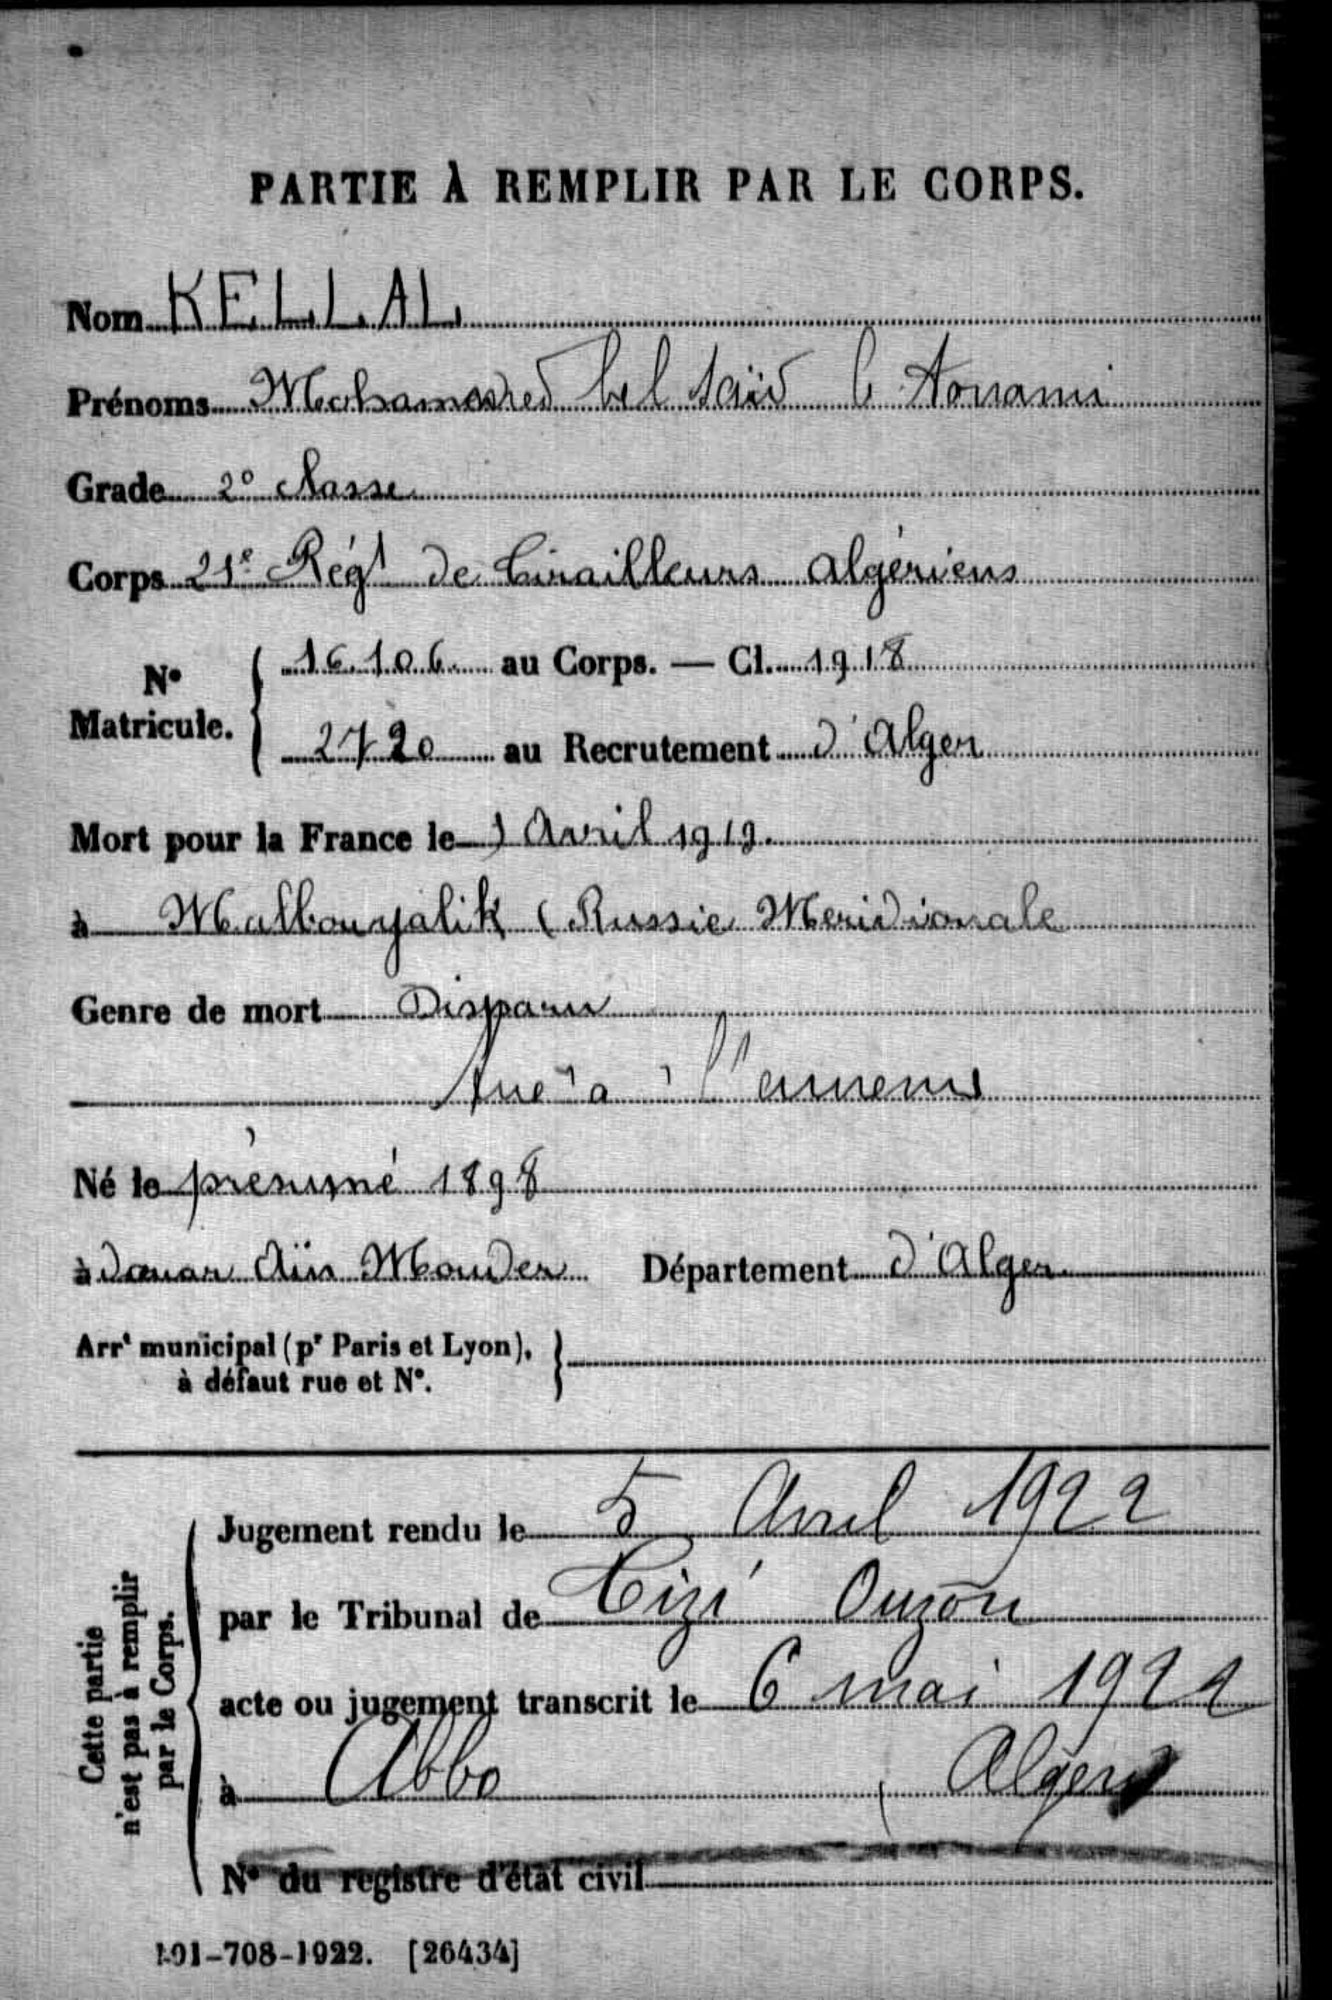 PARTIE À REMPLIR PAR LE CORPS.
Nom KELLAL
Prénoms Mohammed bel Saïd b Aouami
Grade 2º classe
Corps 21º Régt de Tirailleurs algériens
Nº Matricule. 16.106 au Corps. — Cl. 1918
2720 au Recrutement d'Alger
Mort pour la France le 1 Avril 1919.
à (Russie Meridionale
Genre de mort Disparu
tué à l'ennemi
Né le présumé 1898
à douar Aïn Mouder Département d'Alger
Arrt municipal (pr Paris et Lyon), à défaut rue et Nº.
Cette partie n'est pas à remplir par le Corps.
Jugement rendu le 5 Avril 1922
par le Tribunal de Tizi Ouzou
acte ou jugement transcrit le 6 mai 1922
à Abbo (Alger)
Nº du registre d'état civil
101-708-1922. [26434]